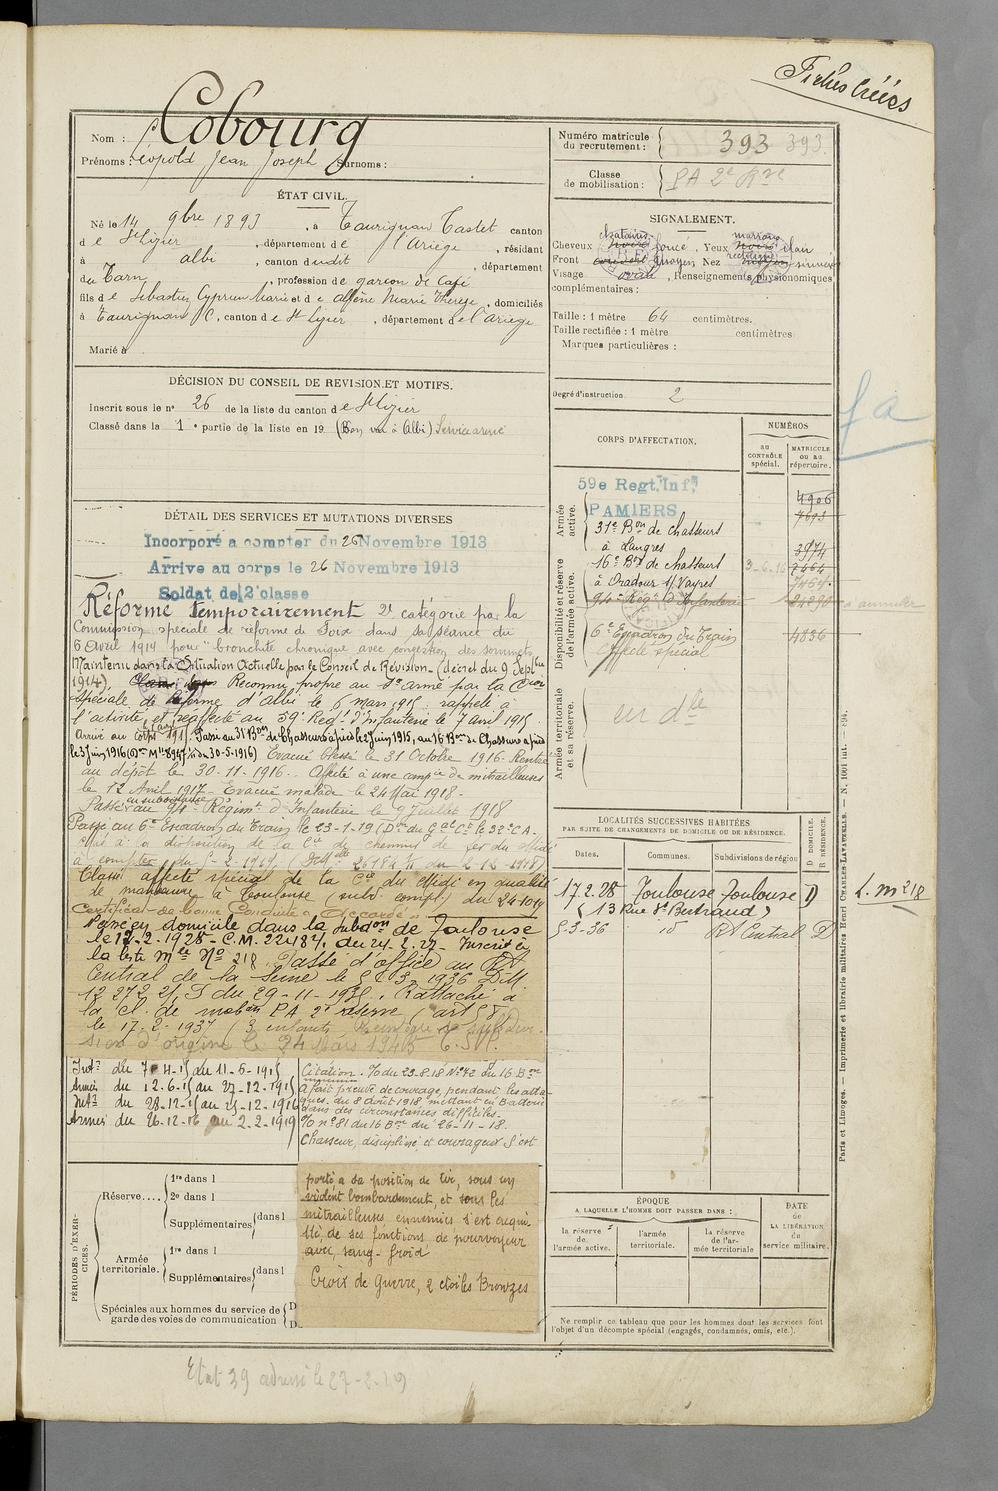 Fiches Créées
Nom : Cobourg
Prénoms : Léopold Jean Joseph Surnoms :
Numéro matricule du recrutement : 393 393
Classe de mobilisation : PA 2e Rve
ÉTAT CIVIL.
Né le 14 9bre 1893, à Taurignan Castet canton
de St Lizier, département de l'Ariège, résidant
à albi, canton dudit, département
du Tarn, profession de garçon de Café
fils de Sébastien Cyprien Marie et de Marie Thérèse, domiciliés
à Taurignan C, canton de St Lizier, département de l'Ariège
Marié à
SIGNALEMENT.
chatains marrons
Cheveux noirs foncé, Yeux noirs clair
rectiligne
Front moyen Nez moyen
Visage ovale, Renseignements physionomiques
complémentaires :
Taille : 1 mètre 64 centimètres.
Taille rectifiée : 1 mètre centimètres
Marques particulières :
Degré d'instruction. 2
DÉCISION DU CONSEIL DE REVISION ET MOTIFS.
Inscrit sous le no 26 de la liste du canton de St Lizier
Classé dans la 1e partie de la liste en 19 (Bon vu à Albi) Service armé
DÉTAIL DES SERVICES ET MUTATIONS DIVERSES
Incorporé a compter du 26 Novembre 1913
Arrive au corps le 26 Novembre 1913
Soldat de 2e classe
Réformé Temporairement 2e catégorie par la
Commission spéciale de réforme de Foix dans sa séance du
6 Avril 1914 pour "bronchite chronique avec congestion des sommets
Maintenu dans la Situation Actuelle par le Conseil de Révision (décret du 9 Septbre
1914). Reconnu propre au Sce armé par la Cion
spéciale de réforme d'Albi le 6 mars 1915 rappelé à
l'activité et réaffecté au 59e Régt d'Infanterie le 7 avril 1915.
Arrivé au corps. Passé au 31 Bon de Chasseurs à pied le 2 juin 1915, au 16 Bon de Chasseurs à pied
le 3 juin 1916 (du 30-5-1916) Evacué blessé le 31 Octobre 1916. Rentré
au dépôt le 30-11-1916. Affecté à une compie de mitrailleuses
le 12 Avril 1917 - Evacué malade le 24 Mai 1918.
en subsistance
Passé au 94e Régimt d'Infanterie le 9 juillet 1918
Passé au 6e Escadron du Train le 23-1-19 (Don du Gal Ct le 32e C.A.
mis à la disposition de la Cie de chemins de fer du Midi
à compter du 5-2-1919.
Classé affecté spécial de la Cie du Midi en qualité
de manœuvre à Toulouse (subd. compl.) du
Certificat de Bonne Conduite "Accordé"
domicile dans la subdon de Toulouse
le 17-2-1928 - C.M. 22487, du 24.2.28 - Inscrit à
la liste mle No 218. Passé d'office au Rt
Central de la Seine le 5-3-1936 D.M.
12 272 2/S du 29-11-1935. Rattaché à
la cl. de mobon PA 2e réserve (art 58)
le 17-2-1937 (3 enfants).
sion d'origine le 24 Mars 1945 T.S.V.P.
Intr du 7-4-15 au 11-6-1915
Armées du 12-6-15 au 27-12-1915
Intr du 28-12-15 au 25-12-1916
Armées du 26-12-16 au 2-2-1919
Citation. O du 23.8.18 No 42 du 16 Bon
A fait preuve de courage, pendant les atta-
ques du 8 Août 1918 mettant en Batterie
dans des circonstances difficiles.
O no 81 du 16 Bon du 26-11-18.
Chasseur, discipliné et courageux s'est
porté à sa position de tir, sous un
violent bombardement, et sous les
mitrailleuses ennemies s'est acqui-
tté de ses fonctions de pourvoyeur
avec sang-froid
Croix de Guerre, 2 étoiles Bronzes
PÉRIODES D'EXERCICES.
Réserve.... 1re dans l
2e dans l
Supplémentaires dans l
Armée territoriale. 1re dans l
Supplémentaires dans l
Spéciales aux hommes du service de garde des voies de communication D
D
CORPS D'AFFECTATION.
NUMÉROS
AU CONTRÔLE spécial.
MATRICULE ou au répertoire.
Armée active.
59e Regt. Inf.
PAMIERS
4906
7693
31e Bon de chasseurs
à Langres
3974
Disponibilité et réserve de l'armée active.
16e Bon de chasseurs 3-6-16 7464
à Oradour s/ Vayres
94e Régt d'Infanterie 24290 à annuler
6e Escadron du Train 4836
affecté spécial
Armée territoriale et sa réserve.
fa
LOCALITÉS SUCCESSIVES HABITÉES
PAR SUITE DE CHANGEMENTS DE DOMICILE OU DE RÉSIDENCE.
Dates. Communes. Subdivisions de région D DOMICILE. R RÉSIDENCE.
17.2.28 Toulouse Toulouse D
(13 Rue St Bertrand)
5-3-36 id Rt Central D
L.m 218
ÉPOQUE
A LAQUELLE L'HOMME DOIT PASSER DANS :
la réserve de l'armée active.
l'armée territoriale.
la réserve de l'armée territoriale
DATE de LA LIBÉRATION du service militaire.
Ne remplir ce tableau que pour les hommes dont les services font
l'objet d'un décompte spécial (engagés, condamnés, omis, etc.).
Paris et Limoges. — Imprimerie et librairie militaires Henri CHARLES-LAVAUZELLE. — N. 1001 int. — 894.
Etat 39 adressé le 27-2-19